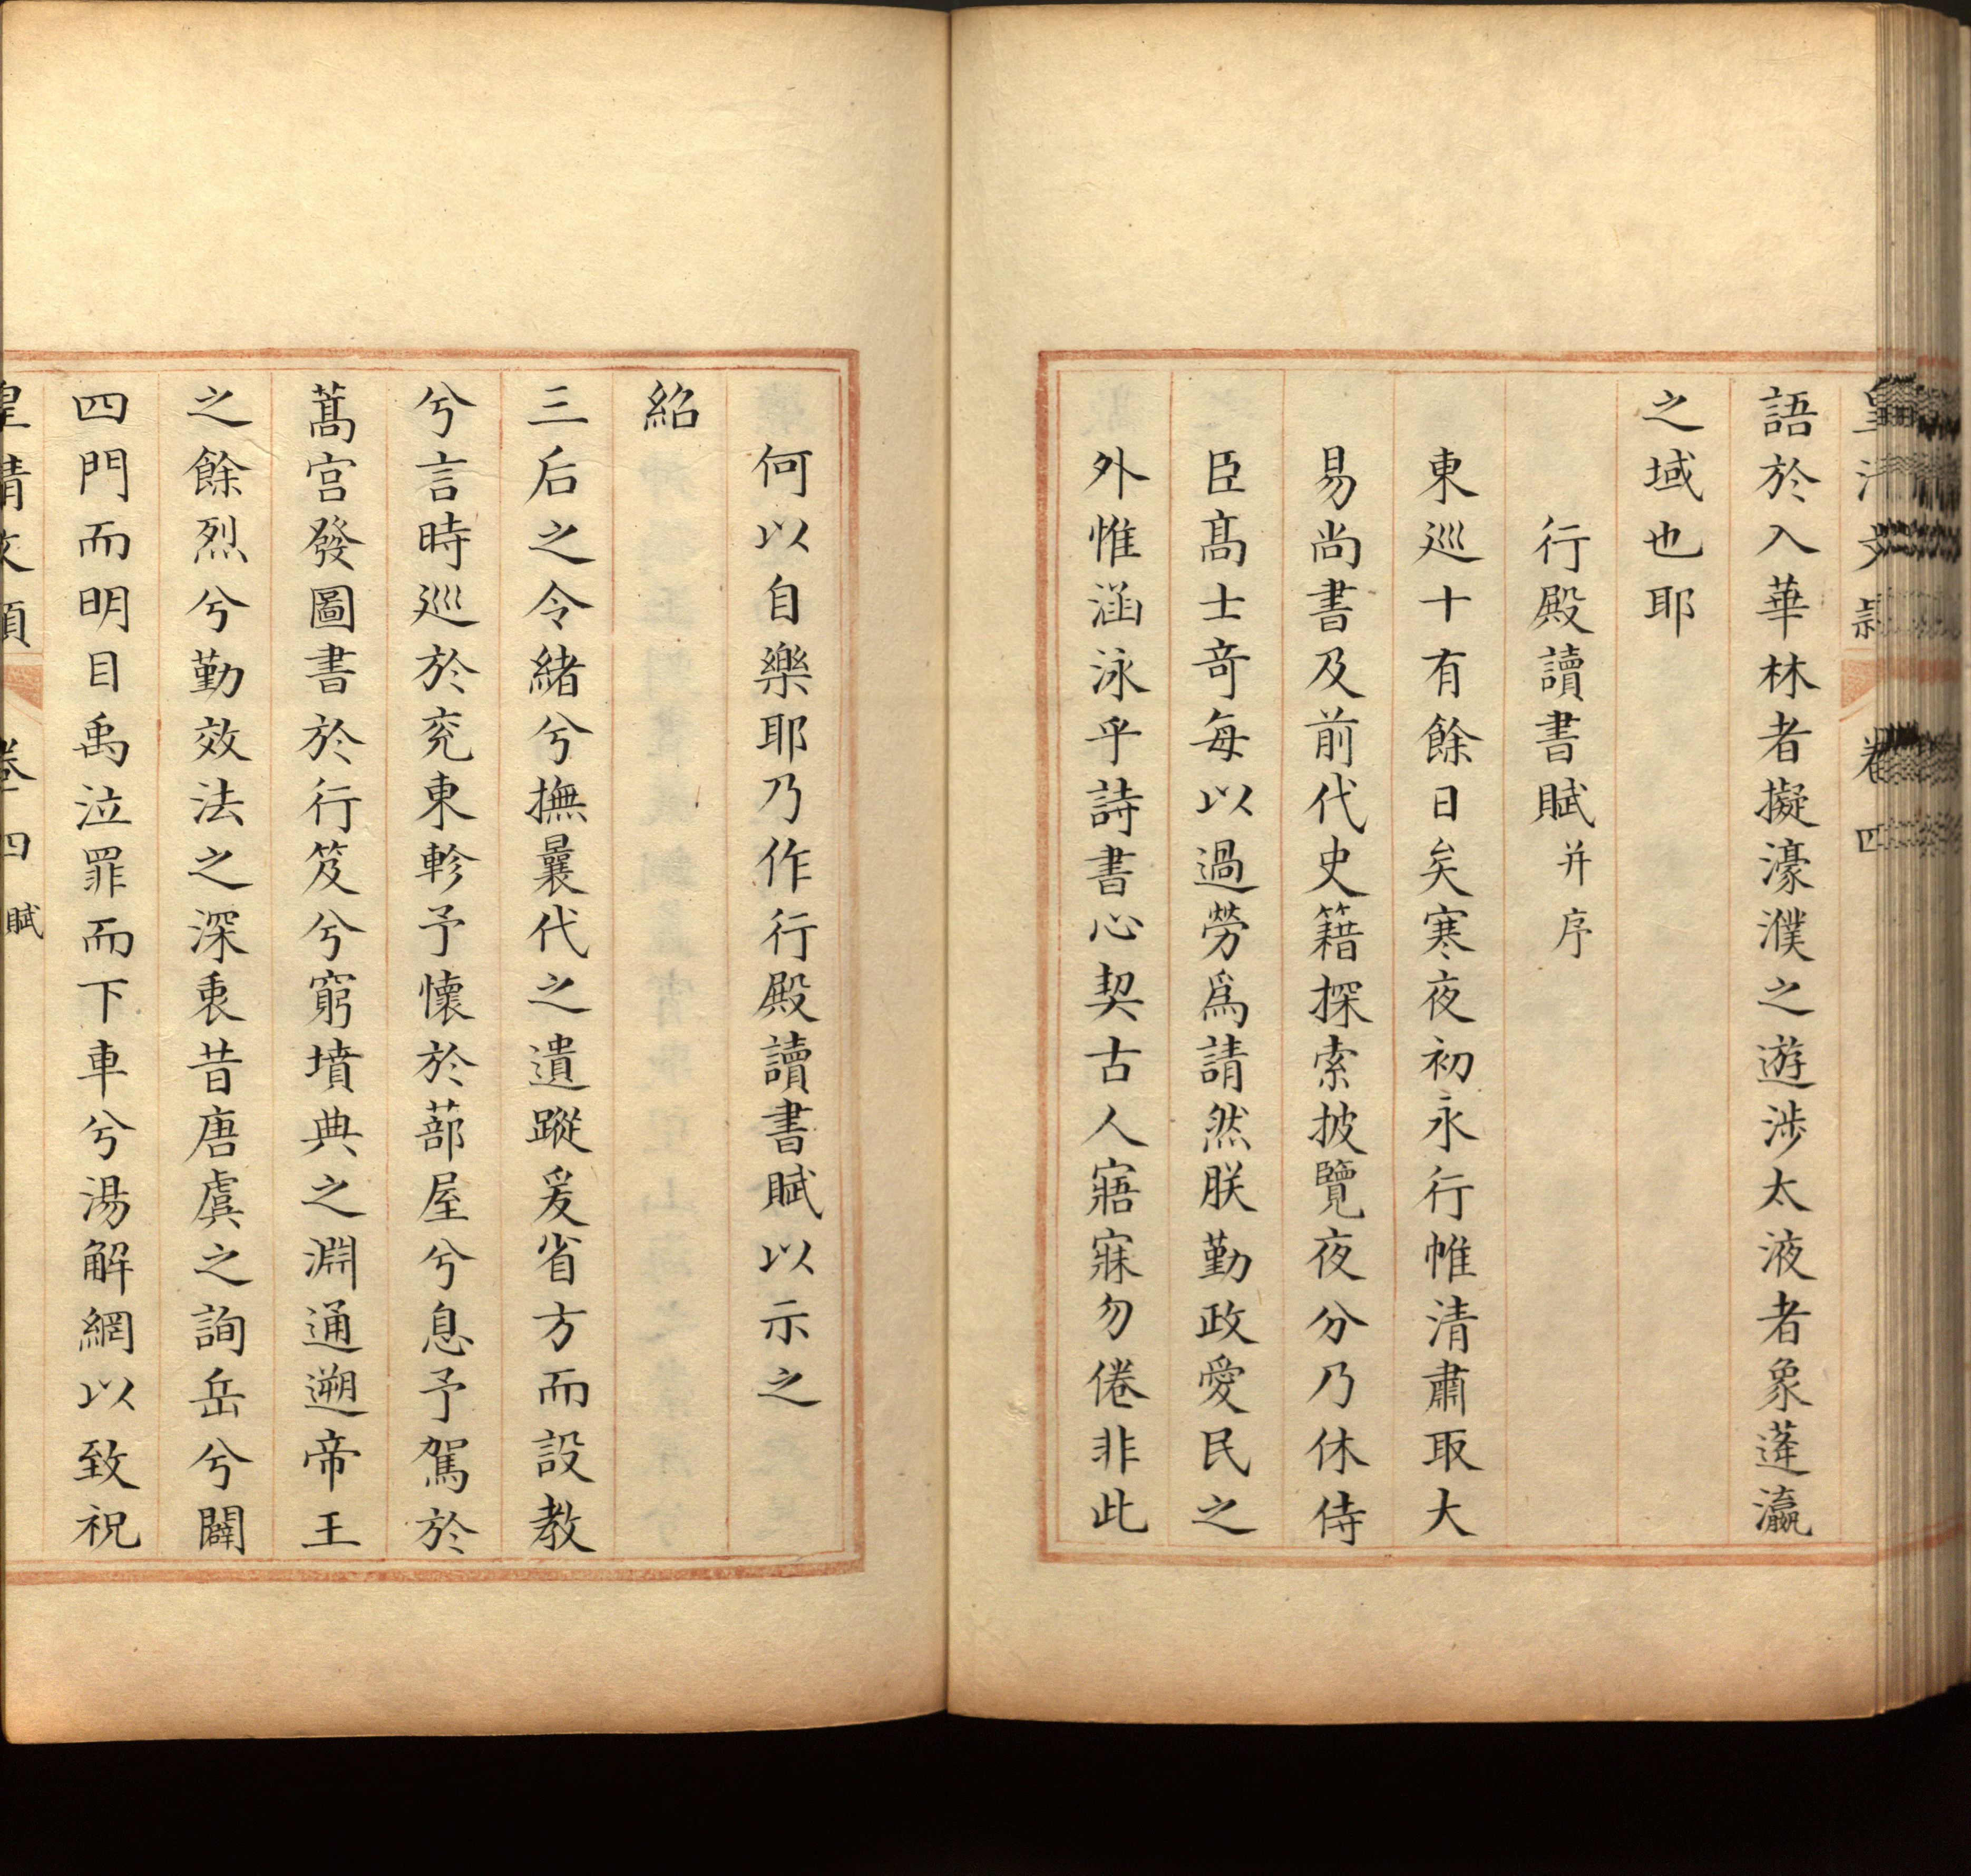 皇清文穎 卷四
語於入華林者擬濠濮之遊涉太液者象蓬瀛
之域也耶
行殿讀書賦并序
東巡十有餘日矣寒夜初永行帷清肅取大
易尚書及前代史籍探索披覽夜分乃休侍
臣髙士竒每以過勞爲請然朕勤政愛民之
外惟涵泳乎詩書心契古人寤寐勿倦非此
何以自樂耶乃作行殿讀書賦以示之
紹
三后之令緒兮撫曩代之遺蹤爰省方而設教
兮言時巡於兖東軫予懷於蔀屋兮息予駕於
蒿宫發圖書於行笈兮窮墳典之淵通遡帝王
之餘烈兮勤效法之深衷昔唐虞之詢岳兮闢
四門而明目禹泣罪而下車兮湯解網以致祝
皇清文穎 卷四 賦